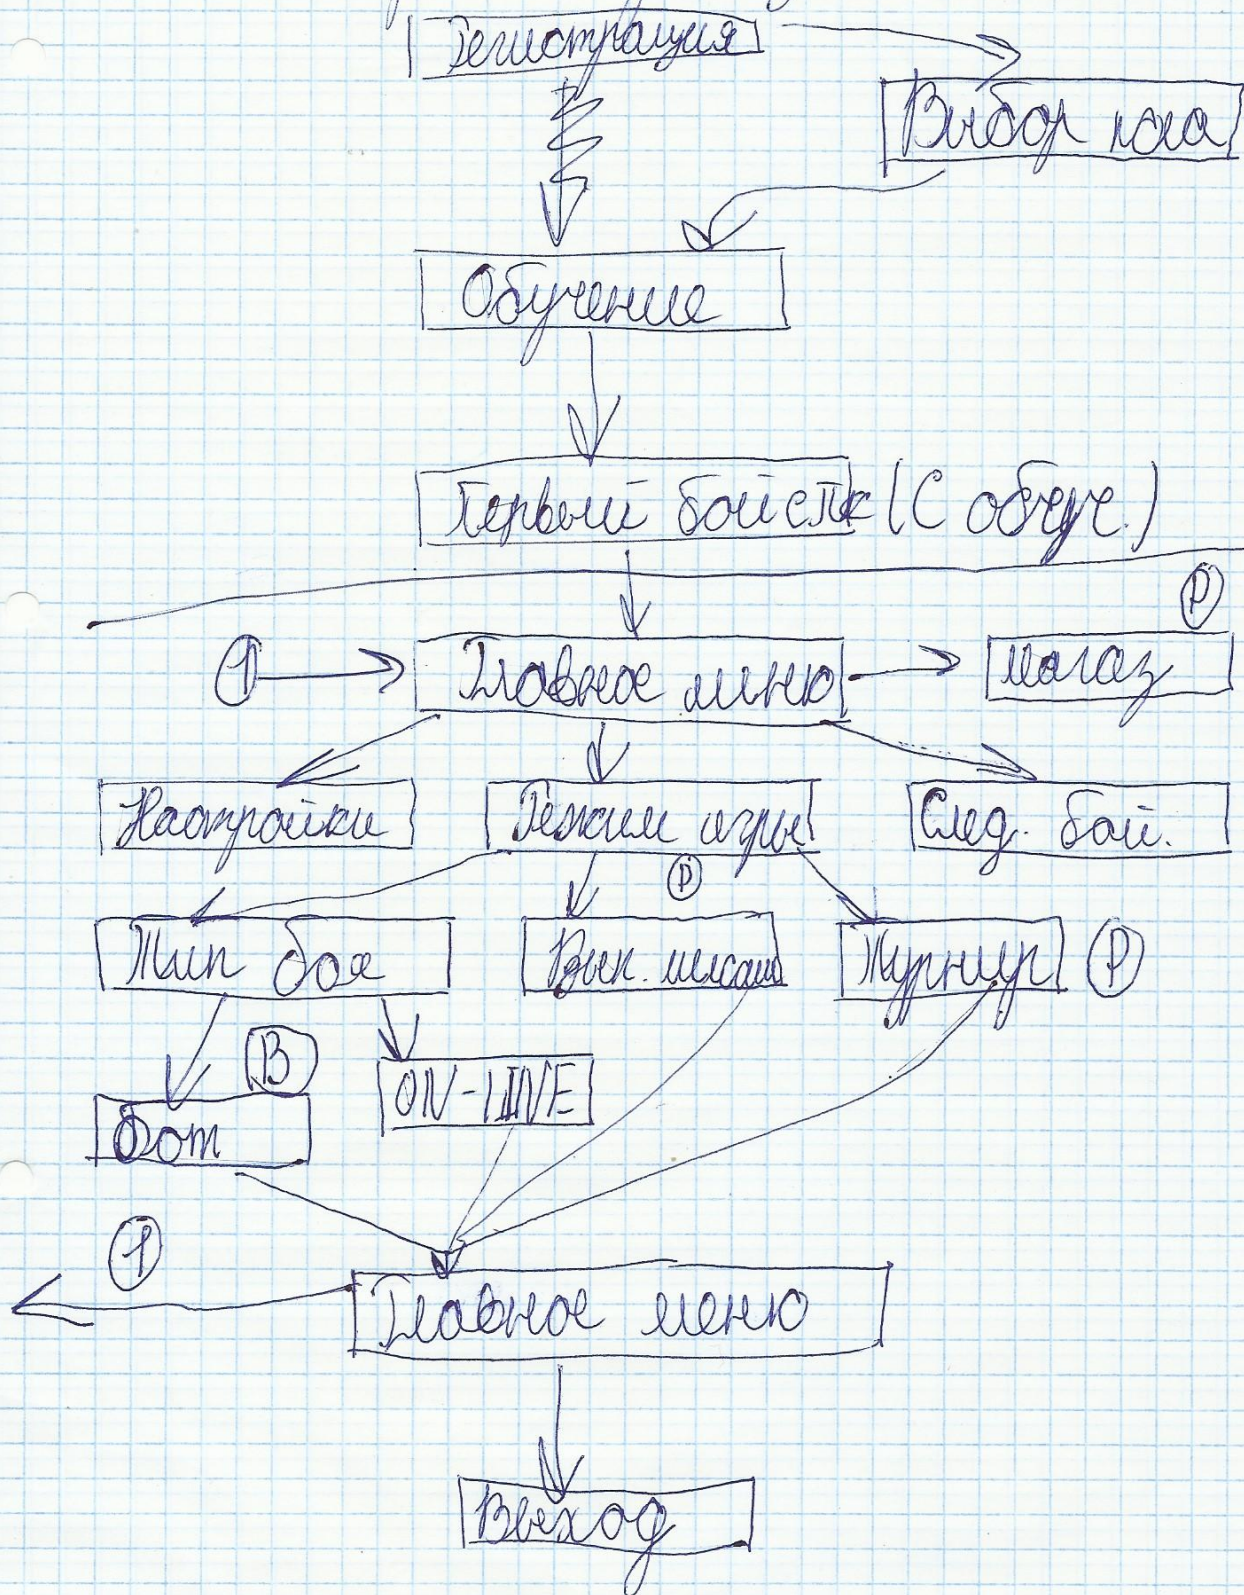 Регистрация
Выбор
Обучение
Первый бой с ПК (С обуч.)
Р
1
Главное меню
магаз
Настройки
Режим игры
След. бой.
Р
Тип боя
Вып. миссий
Турнир
Р
В
ON-LINE
бот
1
Главное меню
Выход